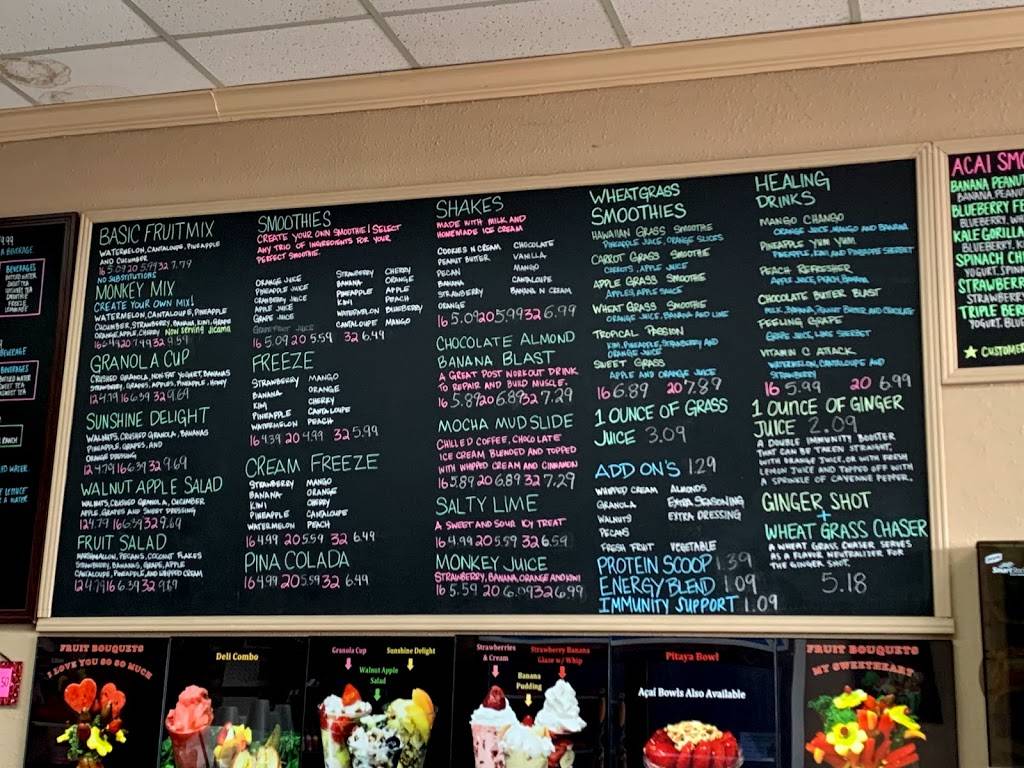 BASIC FRUITMIX
WATERMELON, CANTALOUPE, PINEAPPLE
AND CUCUMBER
16 5.09 20 5.99 32 7.79
NO SUBSTITUTIONS
MONKEY MIX
CREATE YOUR OWN MIX!
WATERMELON, CANTALOUPE, PINEAPPLE
CUCUMBER, STRAWBERRY, BANANA, KIWI, GRAPE
ORANGE, APPLE, CHERRY NOW SERVING JICAMA
GRANOLA CUP
CRUSHED GRANOLA, NON FAT YOGURT, BANANAS
STRAWBERRY, GRAPES, APPLES, PINEAPPLE, HONEY
12 4.79 16 6.39 32 9.69
SUNSHINE DELIGHT
WALNUTS, CRUSHED GRANOLA, BANANAS
PINEAPPLE, GRAPES, AND
ORANGE DRESSING
12 4.79 16 6.39 32 9.69
WALNUT APPLE SALAD
WALNUTS, CRUSHED GRANOLA, CUCUMBER
APPLE, GRAPES AND SWEET DRESSING
12 4.79 16 6.39 32 9.69
FRUIT SALAD
MARSHMALLOW, PECANS, COCONUT FLAKES
STRAWBERRY, BANANAS, GRAPE, APPLE
CANTALOUPE, PINEAPPLE, AND WHIPPED CREAM
12 4.79 16 6.39 32 9.69
SMOOTHIES
CREATE YOUR OWN SMOOTHIE! SELECT
ANY TRIO OF INGREDIENTS FOR YOUR
PERFECT SMOOTHIE.
ORANGE JUICE STRAWBERRY CHERRY
PINEAPPLE JUICE BANANA ORANGE
CRANBERRY JUICE PINEAPPLE APPLE
APPLE JUICE KIWI PEACH
GRAPE JUICE WATERMELON BLUEBERRY
GRAPEFRUIT JUICE CANTALOUPE MANGO
16 5.09 20 5.59 32 6.49
FREEZE
STRAWBERRY MANGO
BANANA ORANGE
KIWI CHERRY
PINEAPPLE CANTALOUPE
WATERMELON PEACH
16 4.39 20 4.99 32 5.99
CREAM FREEZE
STRAWBERRY MANGO
BANANA ORANGE
KIWI CHERRY
PINEAPPLE CANTALOUPE
WATERMELON PEACH
16 4.99 20 5.59 32 6.49
PINA COLADA
16 4.99 20 5.59 32 6.49
SHAKES
MADE WITH MILK AND
HOMEMADE ICE CREAM
COOKIES N CREAM CHOCOLATE
PEANUT BUTTER VANILLA
PECAN MANGO
BANANA CANTALOUPE
STRAWBERRY BANANA N CREAM
ORANGE
16 5.09 20 5.99 32 6.99
CHOCOLATE ALMOND
BANANA BLAST
A GREAT POST WORKOUT DRINK
TO REPAIR AND BUILD MUSCLE.
16 5.89 20 6.89 32 7.29
MOCHA MUDSLIDE
CHILLED COFFEE, CHOCOLATE
ICE CREAM BLENDED AND TOPPED
WITH WHIPPED CREAM AND CINNAMON
16 5.89 20 6.89 32 7.29
SALTY LIME
A SWEET AND SOUR ICY TREAT
16 4.99 20 5.59 32 6.59
MONKEY JUICE
STRAWBERRY, BANANA, ORANGE AND KIWI
16 5.59 20 6.09 32 6.99
WHEATGRASS
SMOOTHIES
HAWAIIAN GRASS SMOOTHIE
PINEAPPLE JUICE, ORANGE SLICES
CARROT GRASS SMOOTHIE
CARROTS, APPLE JUICE
APPLE GRASS SMOOTHIE
APPLES, APPLE SAUCE
WHEAT GRASS SMOOTHIE
ORANGE JUICE, BANANA AND LIME
TROPICAL PASSION
KIWI, PINEAPPLE, STRAWBERRY AND
ORANGE JUICE
SWEET GRASS
APPLE AND ORANGE JUICE
16 6.89 20 7.89
1 OUNCE OF GRASS
JUICE 3.09
ADD ON'S 1.29
WHIPPED CREAM ALMONDS
GRANOLA EXTRA SEASONING
WALNUTS EXTRA DRESSING
PECANS
FRESH FRUIT VEGETABLE
PROTEIN SCOOP 1.39
ENERGY BLEND 1.09
IMMUNITY SUPPORT 1.09
HEALING
DRINKS
MANGO CHANGO
ORANGE JUICE, MANGO AND BANANA
PINEAPPLE YUM YUM
PINEAPPLE, KIWI AND PINEAPPLE SHERBET
PEACH REFRESHER
APPLE JUICE, PEACH, BANANA
CHOCOLATE BUTTER BLAST
MILK, BANANA, PEANUT BUTTER AND CHOCOLATE
FEELING GRAPE
GRAPE JUICE, LIME SHERBET
VITAMIN C ATTACK
WATERMELON, CANTALOUPE AND
STRAWBERRY
16 5.99 20 6.99
1 OUNCE OF GINGER
JUICE 2.09
A DOUBLE IMMUNITY BOOSTER
THAT CAN BE TAKEN STRAIGHT,
WITH ORANGE JUICE, OR WITH FRESH
LEMON JUICE AND TOPPED OFF WITH
A SPRINKLE OF CAYENNE PEPPER.
GINGER SHOT
+
WHEAT GRASS CHASER
A WHEAT GRASS CHASER SERVES
AS A FLAVOR NEUTRALIZER FOR
THE GINGER SHOT.
5.18
ACAI SMO
BANANA PEANU
BANANA, PEANU
BLUEBERRY FE
BLUEBERRY, WH
KALE GORILLA
BLUEBERRY, K
SPINACH CHI
YOGURT, SPINA
STRAWBERR
STRAWBERRY
TRIPLE BER
YOGURT, BLUE
CUSTOME
FRUIT BOUQUETS
I LOVE YOU SO SO MUCH
Deli Combo
Granola Cup
Sunshine Delight
Walnut Apple
Salad
Strawberries
& Cream
Strawberry Banana
Glaze w/ Whip
Banana
Pudding
Pitaya Bowl
Açaí Bowls Also Available
FRUIT BOUQUETS
MY SWEETHEART